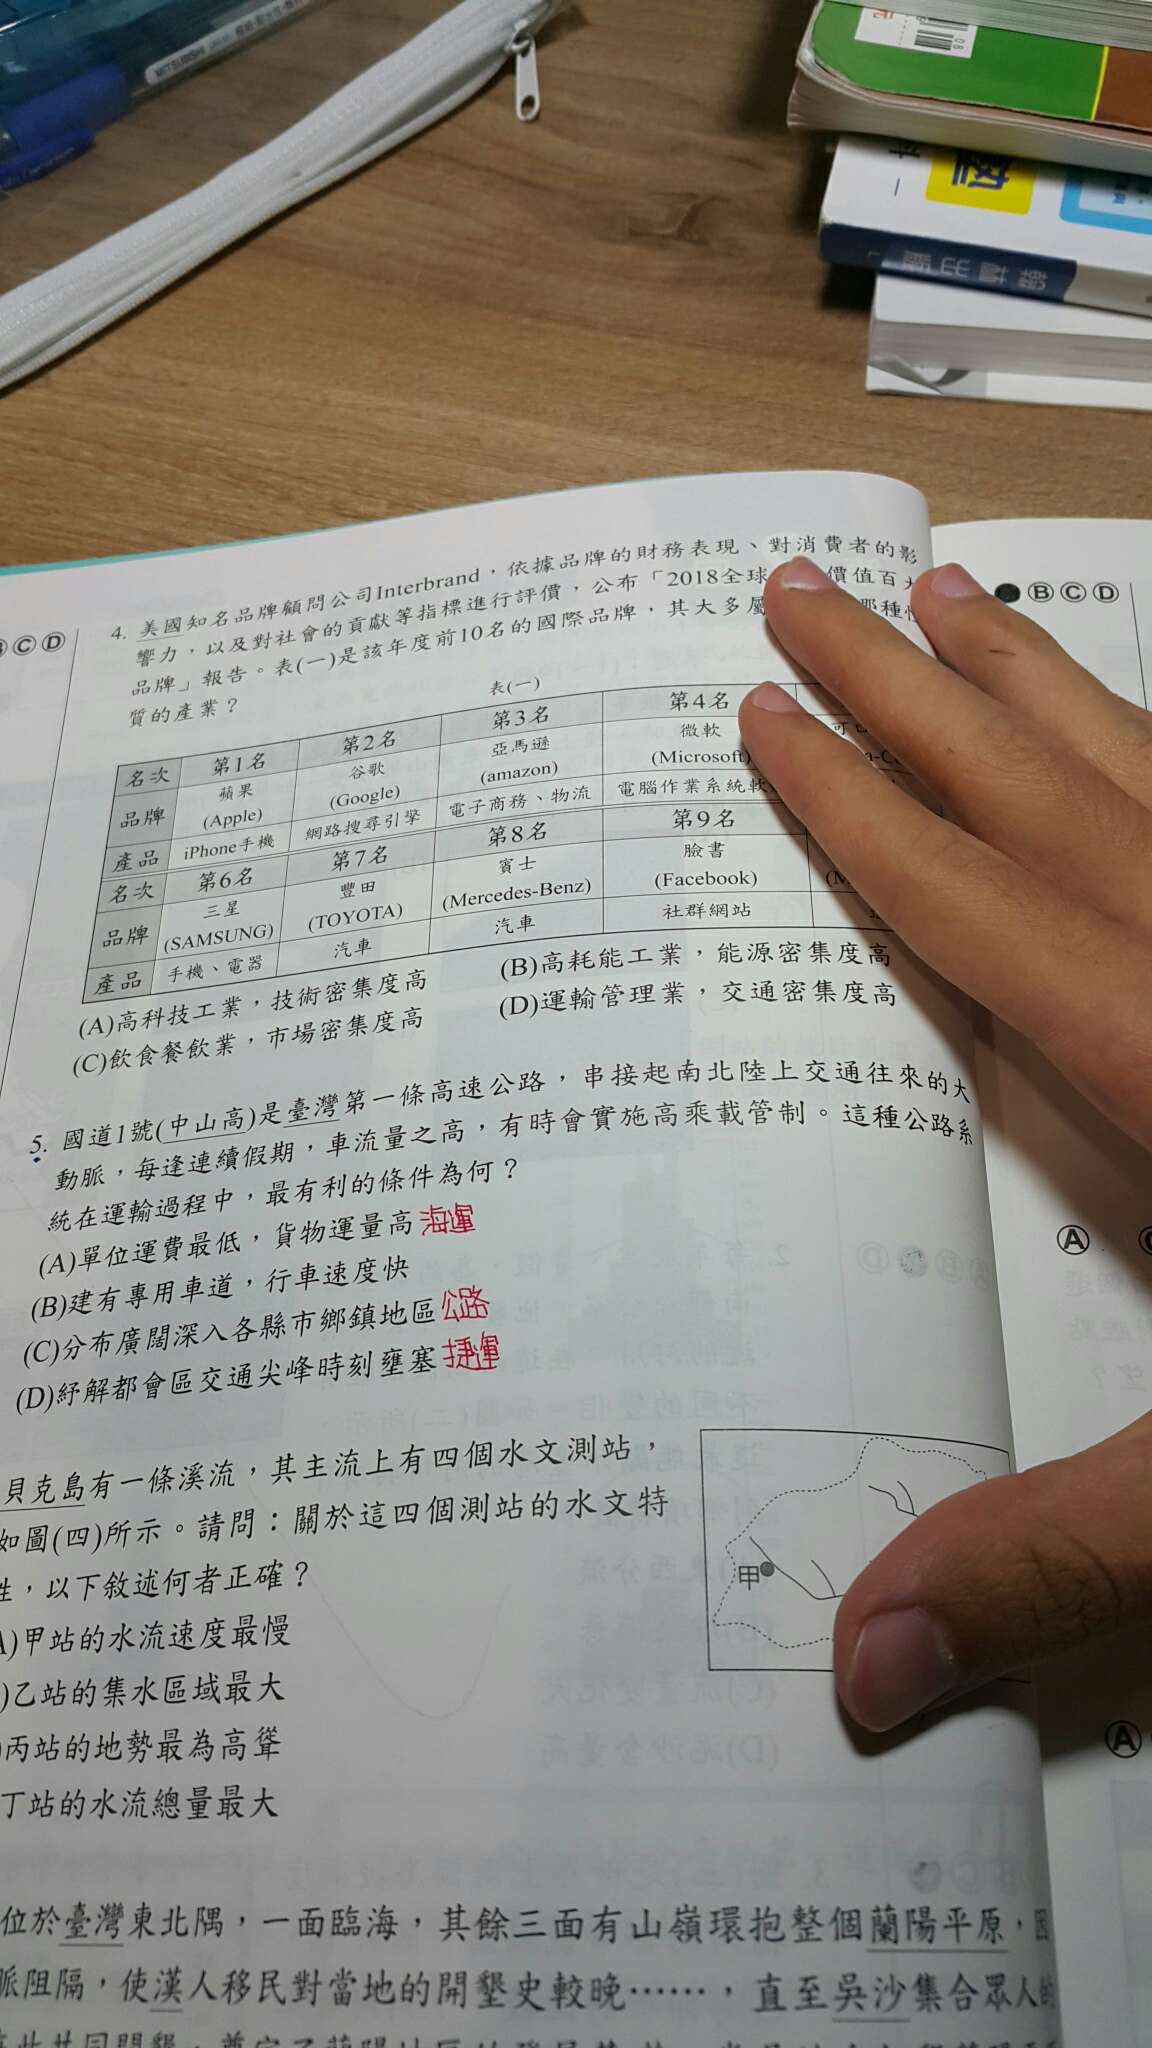 MITSUBISHI
08
翰林出版
ⒷⒸⒹ
ⒸⒹ
4. 美國知名品牌顧問公司Interbrand，依據品牌的財務表現、對消費者的影
響力，以及對社會的貢獻等指標進行評價，公布「2018全球 價值百大
品牌」報告。表(一)是該年度前10名的國際品牌，其大多屬 哪種性
質的產業？
表(一)
名次 第1名 第2名 第3名 第4名
品牌 蘋果(Apple) 谷歌(Google) 亞馬遜(amazon) 微軟(Microsoft)
產品 iPhone手機 網路搜尋引擎 電子商務、物流 電腦作業系統軟
名次 第6名 第7名 第8名 第9名
品牌 三星(SAMSUNG) 豐田(TOYOTA) 賓士(Mercedes-Benz) 臉書(Facebook)
產品 手機、電器 汽車 汽車 社群網站
(A)高科技工業，技術密集度高 (B)高耗能工業，能源密集度高
(C)飲食餐飲業，市場密集度高 (D)運輸管理業，交通密集度高
5. 國道1號(中山高)是臺灣第一條高速公路，串接起南北陸上交通往來的大
動脈，每逢連續假期，車流量之高，有時會實施高乘載管制。這種公路系
統在運輸過程中，最有利的條件為何？
(A)單位運費最低，貨物運量高 海運
(B)建有專用車道，行車速度快
(C)分布廣闊深入各縣市鄉鎮地區 公路
(D)紓解都會區交通尖峰時刻壅塞 捷運
貝克島有一條溪流，其主流上有四個水文測站，
如圖(四)所示。請問：關於這四個測站的水文特
性，以下敘述何者正確？
A)甲站的水流速度最慢
)乙站的集水區域最大
)丙站的地勢最為高聳
丁站的水流總量最大
甲
Ⓐ
Ⓐ
位於臺灣東北隅，一面臨海，其餘三面有山嶺環抱整個蘭陽平原，因
脈阻隔，使漢人移民對當地的開墾史較晚……，直至吳沙集合眾人的